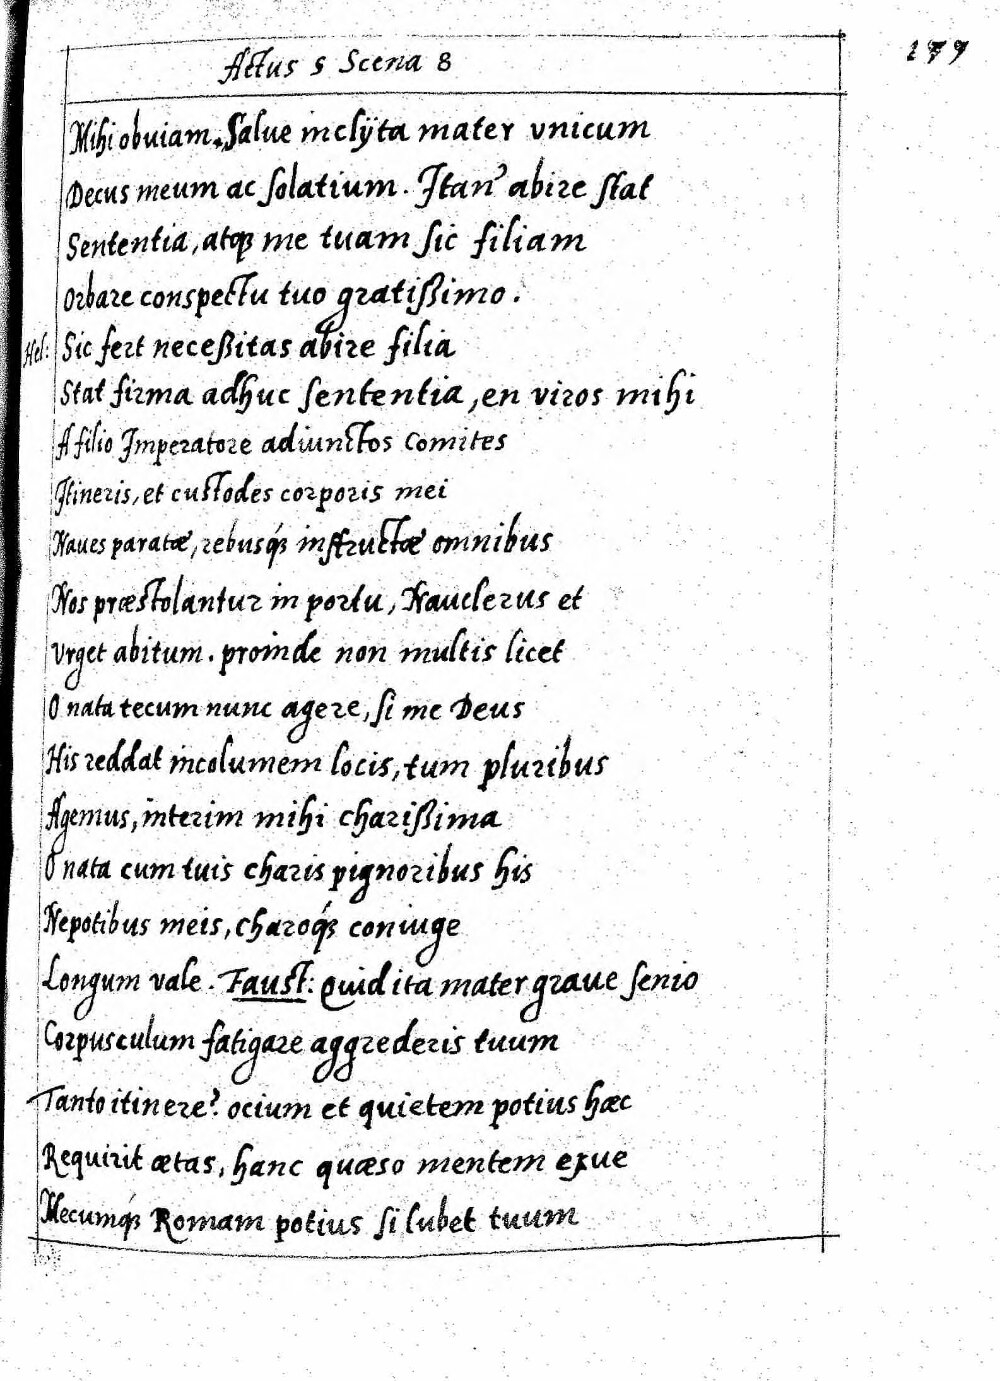 Actus 5 Scena 8
177
Mihi obuiam. Salue inclÿta mater vnicum
Decus meum ac solatium. Itan' abire stat
Sententia, atqȝ me tuam sic filiam
Orbare conspectu tuo gratißimo.
Hel: Sic fert neceßitas abire filia
Stat firma adhuc sententia, en viros mihi
A filio Imperatore adiunctos comites
Itineris, et custodes corporis mei
Naues paratæ, rebusqȝ́ instructæ omnibus
Nos præstolantur in portu, Nauclerus et
Vrget abitum. proinde non multis licet
O nata tecum nunc agere, si me Deus
His reddat incolumem locis, tum pluribus
Agemus, interim mihi charißima
O nata cum tuis charis pignoribus his
Nepotibus meis, charoqȝ́ coniuge
Longum vale. Faust: Quid ita mater graue senio
Corpusculum fatigare aggrederis tuum
Tanto itinere? ocium et quietem potius hæc
Requirit ætas, hanc quæso mentem exue
Mecumqȝ́ Romam potius si lubet tuum